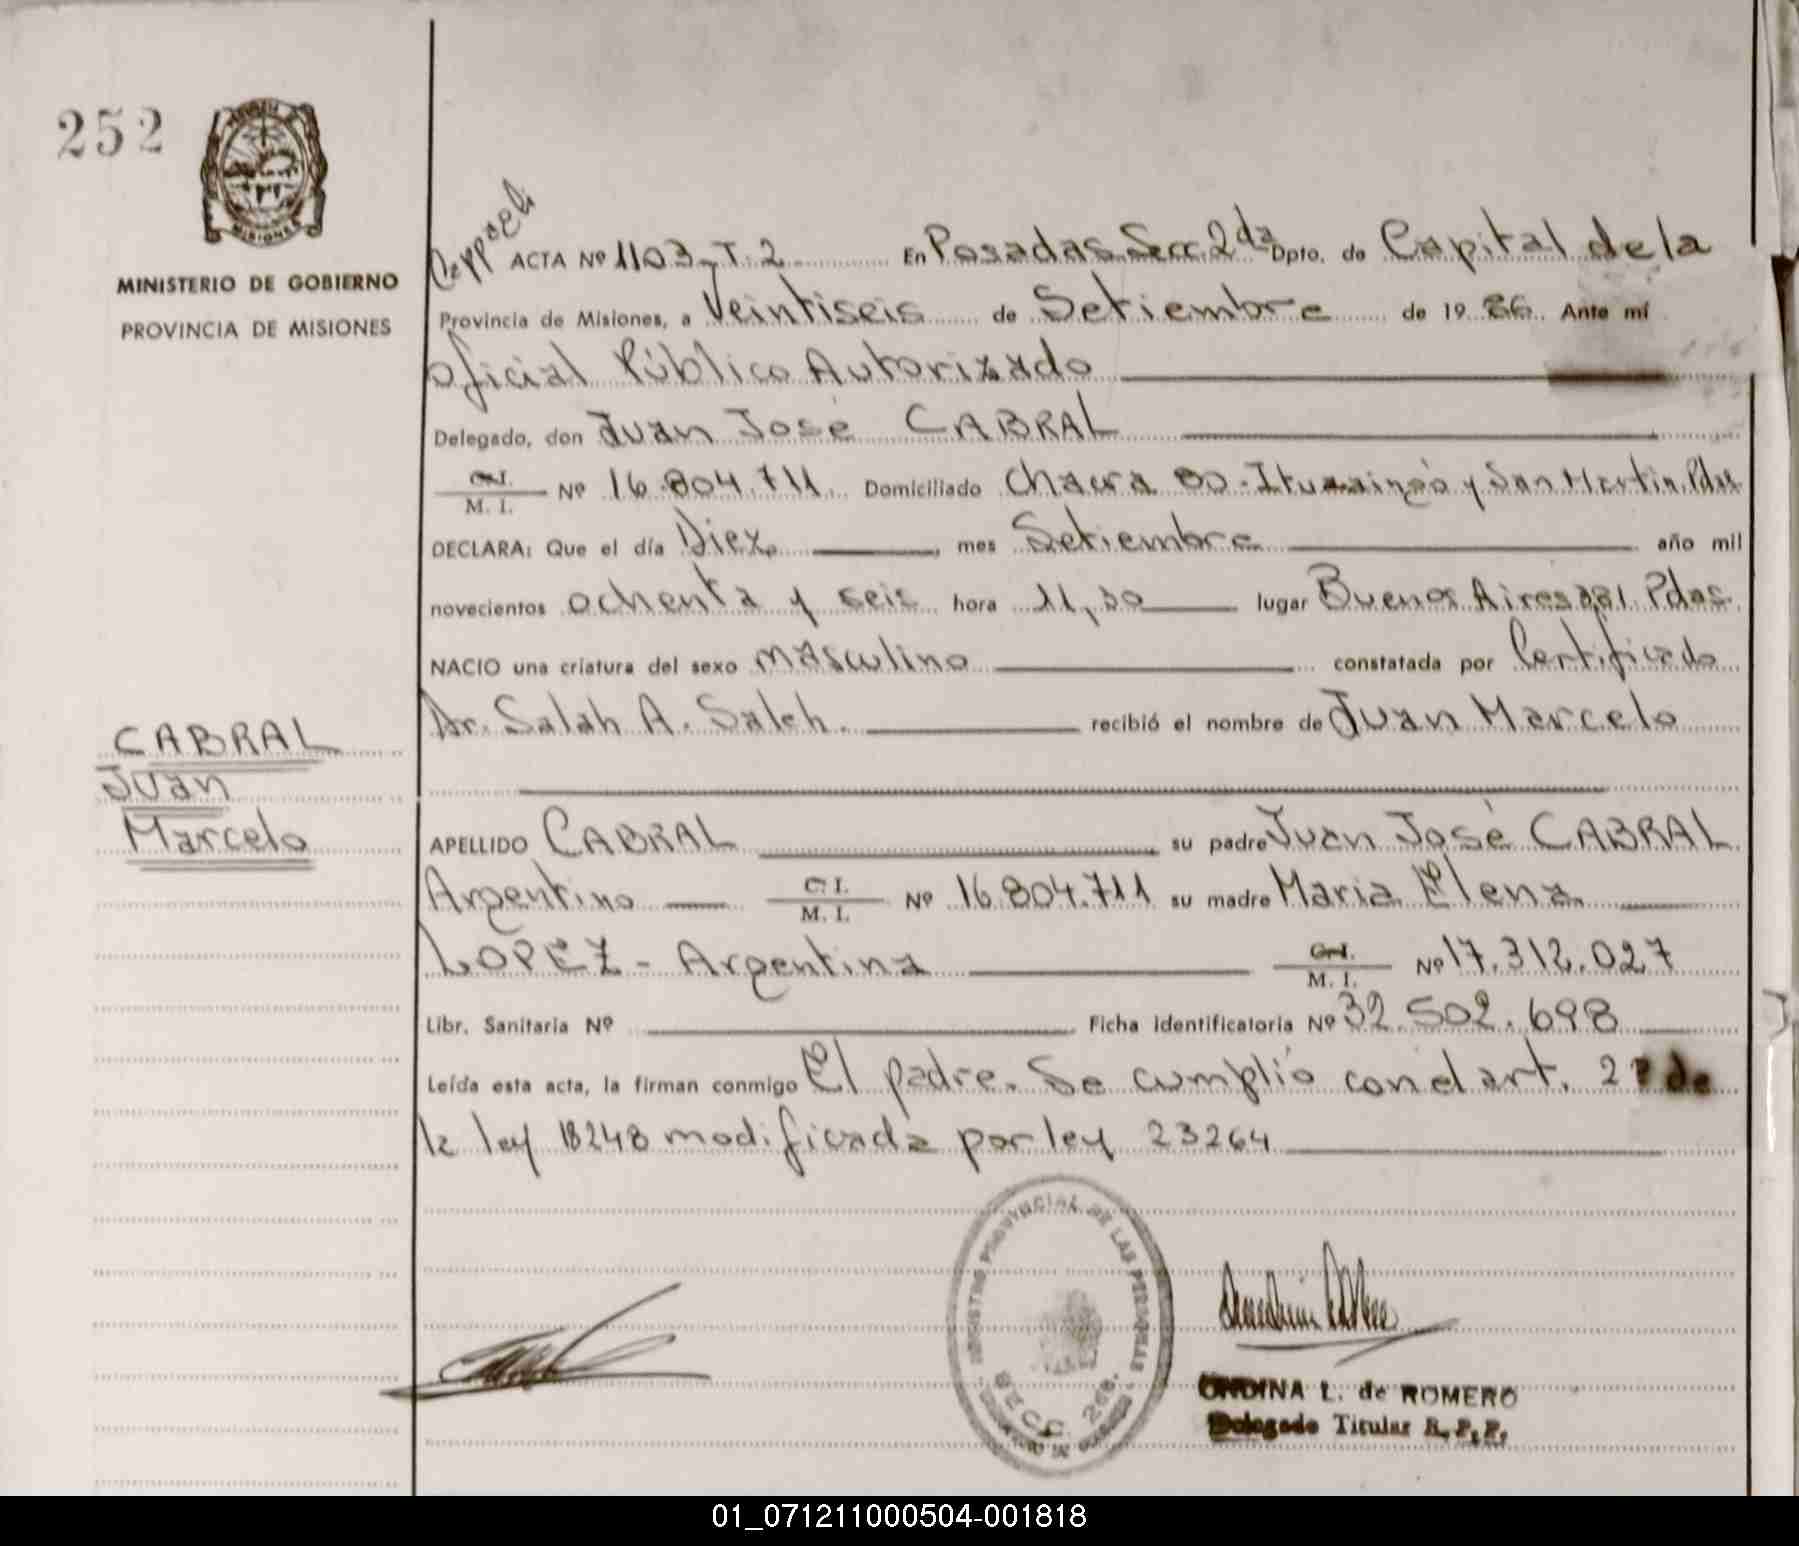 252
MISIONES
MINISTERIO DE GOBIERNO
PROVINCIA DE MISIONES
CABRAL
Juan
Marcelo
ACTA Nº 1103-T.2 En Posadas Secc. 2da Dpto. de Capital de la
Provincia de Misiones, a Veintiseis de Setiembre de 1986. Ante mí
Oficial Público Autorizado
Delegado, don Juan José CABRAL
C.I. / M. I. Nº 16.804.711 Domiciliado Chacra 80 - Ituzaingó y San Martin. Pdas
DECLARA: Que el día Diez mes Setiembre año mil
novecientos ochenta y seis hora 11,30 lugar Buenos Aires Pdas.
NACIO una criatura del sexo masculino constatada por Certificado
Dr. Salah A. Saleh. recibió el nombre de Juan Marcelo
APELLIDO CABRAL su padre Juan José CABRAL
Argentino C.I. / M. I. Nº 16.804.711 su madre Maria Elena
LOPEZ - Argentina C.I. / M. I. Nº 17.312.027
Libr. Sanitaria Nº Ficha identificatoria Nº 32.502.698
Leída esta acta, la firman conmigo El padre. Se cumplió con el art. 2º de
la ley 18248 modificada por ley 23264
REGISTRO PROVINCIAL DE LAS PERSONAS
SECC. 2da.
ONDINA L. de ROMERO
Delegado Titular R. P. P.
01_071211000504-001818